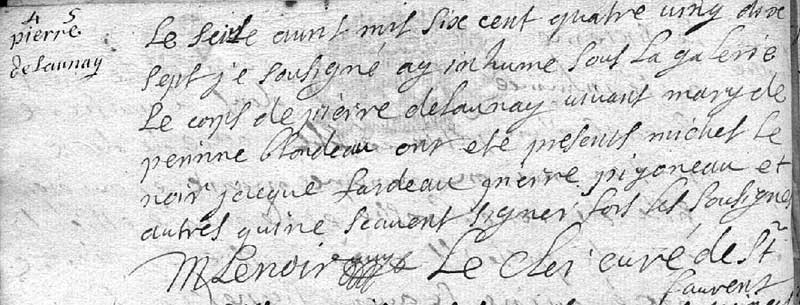 4 5
pierre
delaunay
Le seise aunt mil six cent quatre ving dix
sept je sousigné ay inhume sous La galerie
Le corps de pierre delaunay vivant mary de
perinne blondeau ont eté presents michel le
noir jacque fardeau pierre pigoneau et
autres qui ne scavent signer fors les sousignes
M Lenoir Le Cler curé de St
Laurent